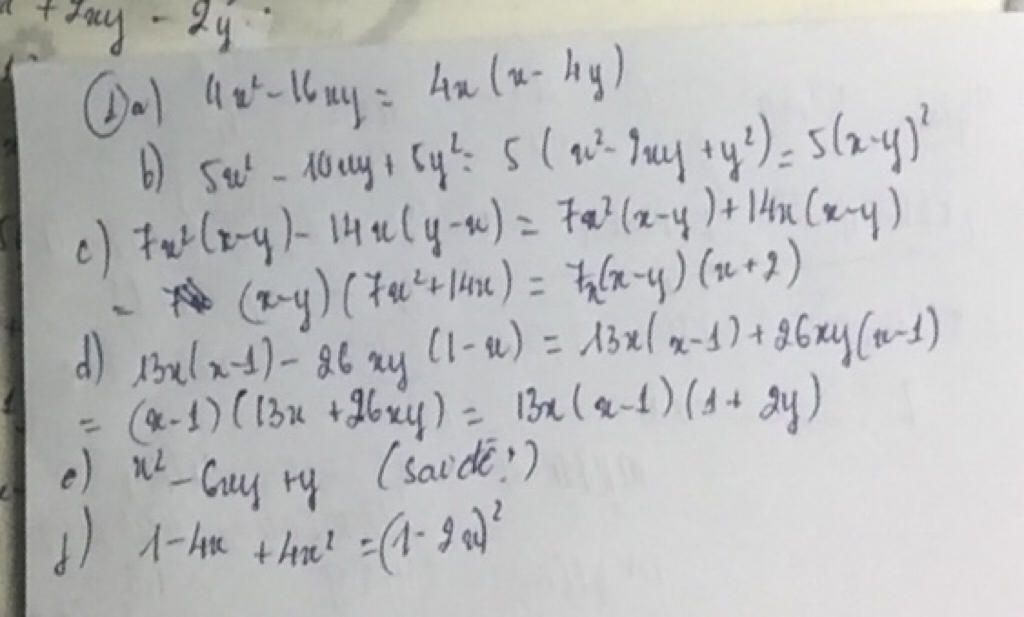 + 2xy - 2y
① a) 4x² - 16xy = 4x(x - 4y)
b) 5x² - 10xy + 5y² = 5(x² - 2xy + y²) = 5(x-y)²
c) 7x²(x-y) - 14x(y-x) = 7x²(x-y) + 14x(x-y)
= (x-y)(7x² + 14x) = 7x(x-y)(x+2)
d) 13x(x-1) - 26xy(1-x) = 13x(x-1) + 26xy(x-1)
= (x-1)(13x + 26xy) = 13x(x-1)(1+2y)
e) x² - 6xy + y (sai đề?)
f) 1 - 4x + 4x² = (1 - 2x)²